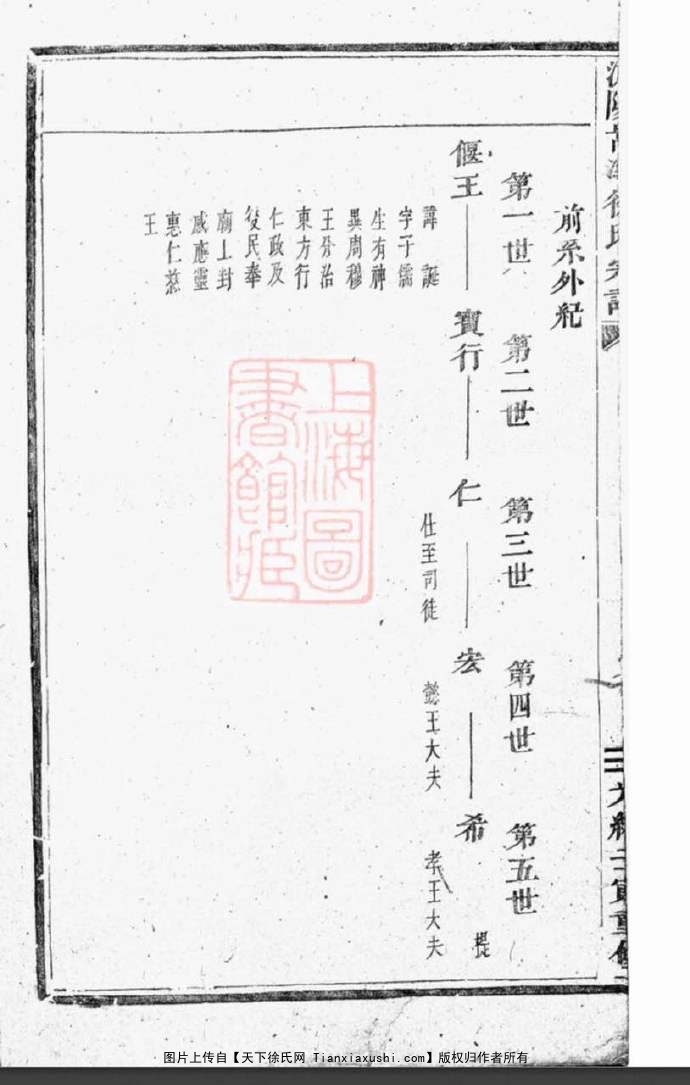 徐氏宗譜
二
光緒壬寅重修
前系外紀
第一世 第二世 第三世 第四世 第五世
偃王 寶行 仁 宏 希
諱誕
字子儒
生有神
異周穆
王分治
東方行
仁政及
後民奉
廟上封
感應靈
惠仁慈
王
仕至司徒
懿王大夫
孝王大夫
提
上海圖
書館藏
图片上传自【天下徐氏网 Tianxiaxushi.com】版权归作者所有